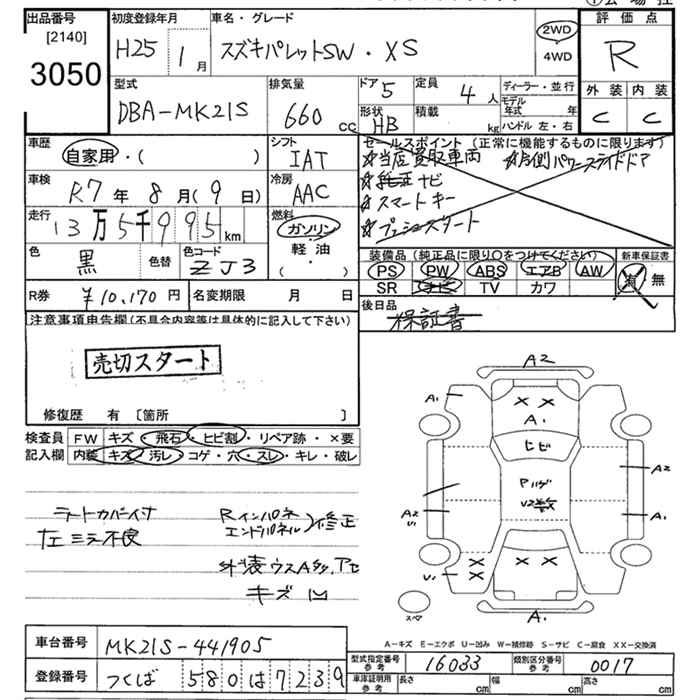 出品番号
[2140]
3050
初度登録年月
H25 1月
車名・グレード
スズキパレットSW・XS
2WD
4WD
評価点
R
外装 内装
C C
型式
DBA-MK21S
排気量
660 cc
ドア 5
定員 4人
形状 HB
積載 kg
ディーラー・並行
モデル年式 年
ハンドル 左・右
車歴
自家用・( )
シフト
IAT
セールスポイント (正常に機能するものに限ります)
☆当店買取車両 ☆左側パワースライドドア
☆純正ナビ
☆スマートキー
☆プッシュスタート
車検
R7年 8月(9日)
冷房
AAC
走行
13万5千995km
燃料
ガソリン
軽油
(・)
色
黒
色替
色コード
ZJ3
装備品 (純正品に限り○をつけてください)
PS PW ABS エアB AW
SR ナビ TV カワ
新車保証書
有 無
R券 ¥10,170円
名変期限 月 日
後日品
保証書
注意事項申告欄(不具合内容等は具体的に記入して下さい)
売切スタート
修復歴 有 〔箇所 〕
検査員記入欄
FW キズ・飛石・ヒビ割・リペア跡・×要
内装 キズ・汚レ・コゲ・穴・スレ・キレ・破レ
シートカバー付
左ミラー不良
Rインパネ
エンドパネル 修正
外装ウスA
キズ凹
A2
A1
××
A1
ヒビ
A2
A2
U1
A1
U1
××
××
××
A1
スペア
A-キズ E-エクボ U-凹み W-補修跡 S-サビ C-腐食 XX-交換済
車台番号
MK21S-441905
登録番号
つくば 580 は 7239
型式指定番号 参考
16033
類別区分番号 参考
0017
車庫証明用 参考
長さ cm 幅 cm 高さ cm